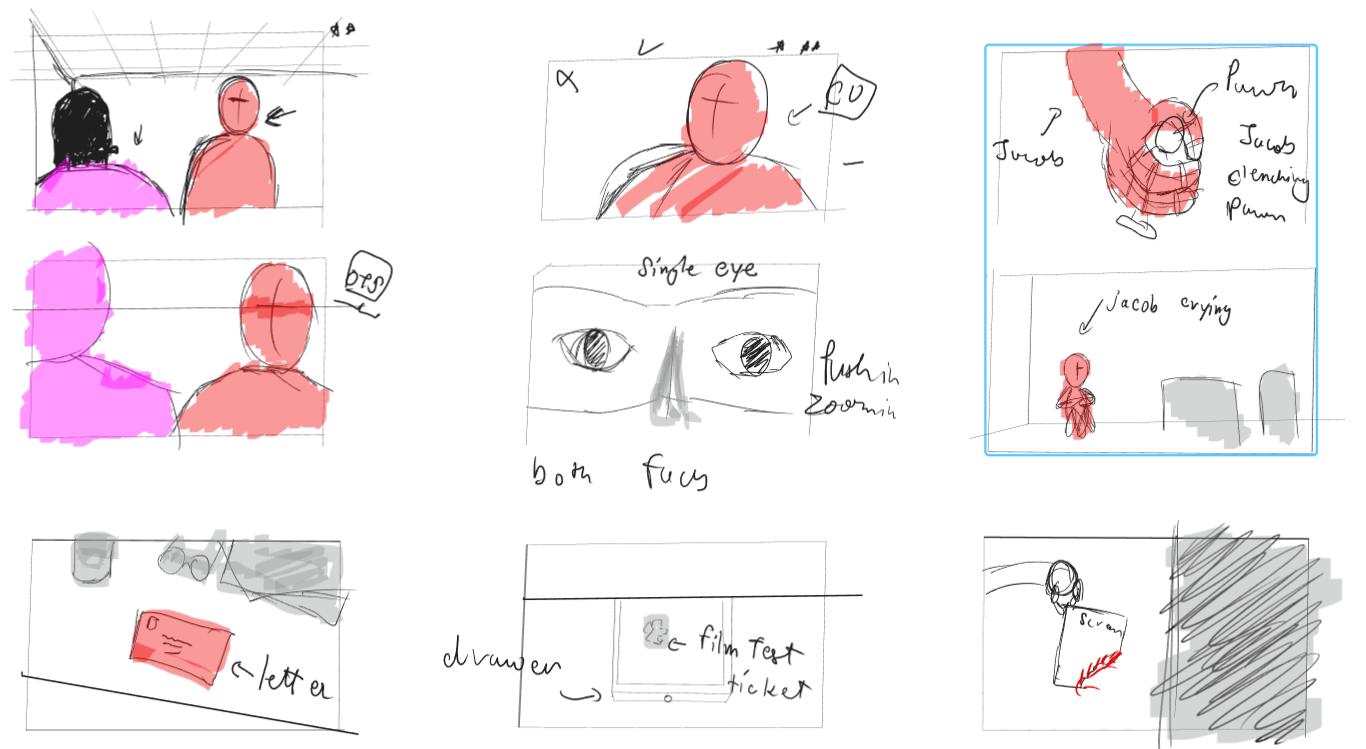 CU
Pawn
Jacob
Jacob
clenching
Pawn
OTS
Single eye
Push in
Zoom in
both
Jacob crying
letter
drawer
film Test
ticket